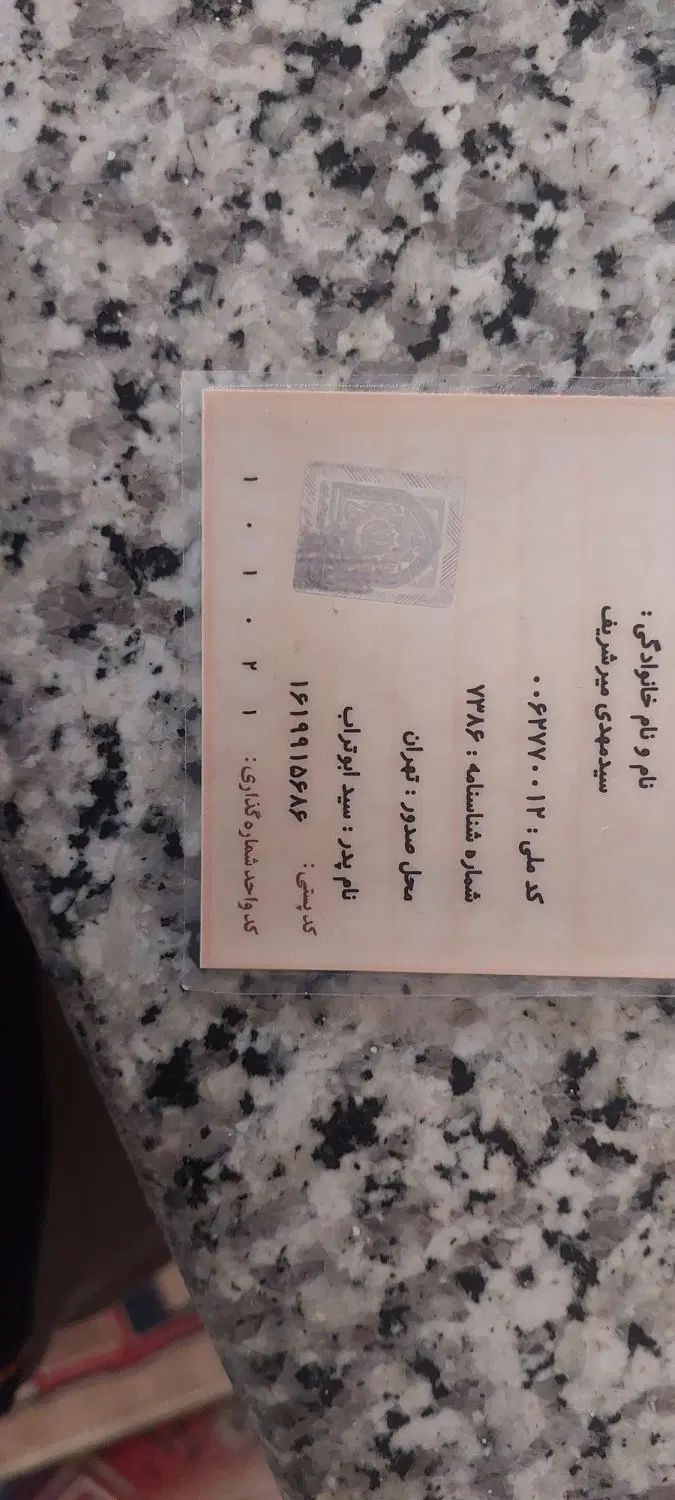 نام و نام خانوادگی :
سیدمهدی میرشریف
کد ملی : ۰۰۶۲۷۷۰۰۱۲
شماره شناسنامه : ۷۳۸۶
محل صدور : تهران
نام پدر : سید ابوتراب
کد پستی : ۱۶۱۹۹۱۵۶۸۶
کد واحد شماره گذاری : ۱ ۰ ۱ ۰ ۲ ۱